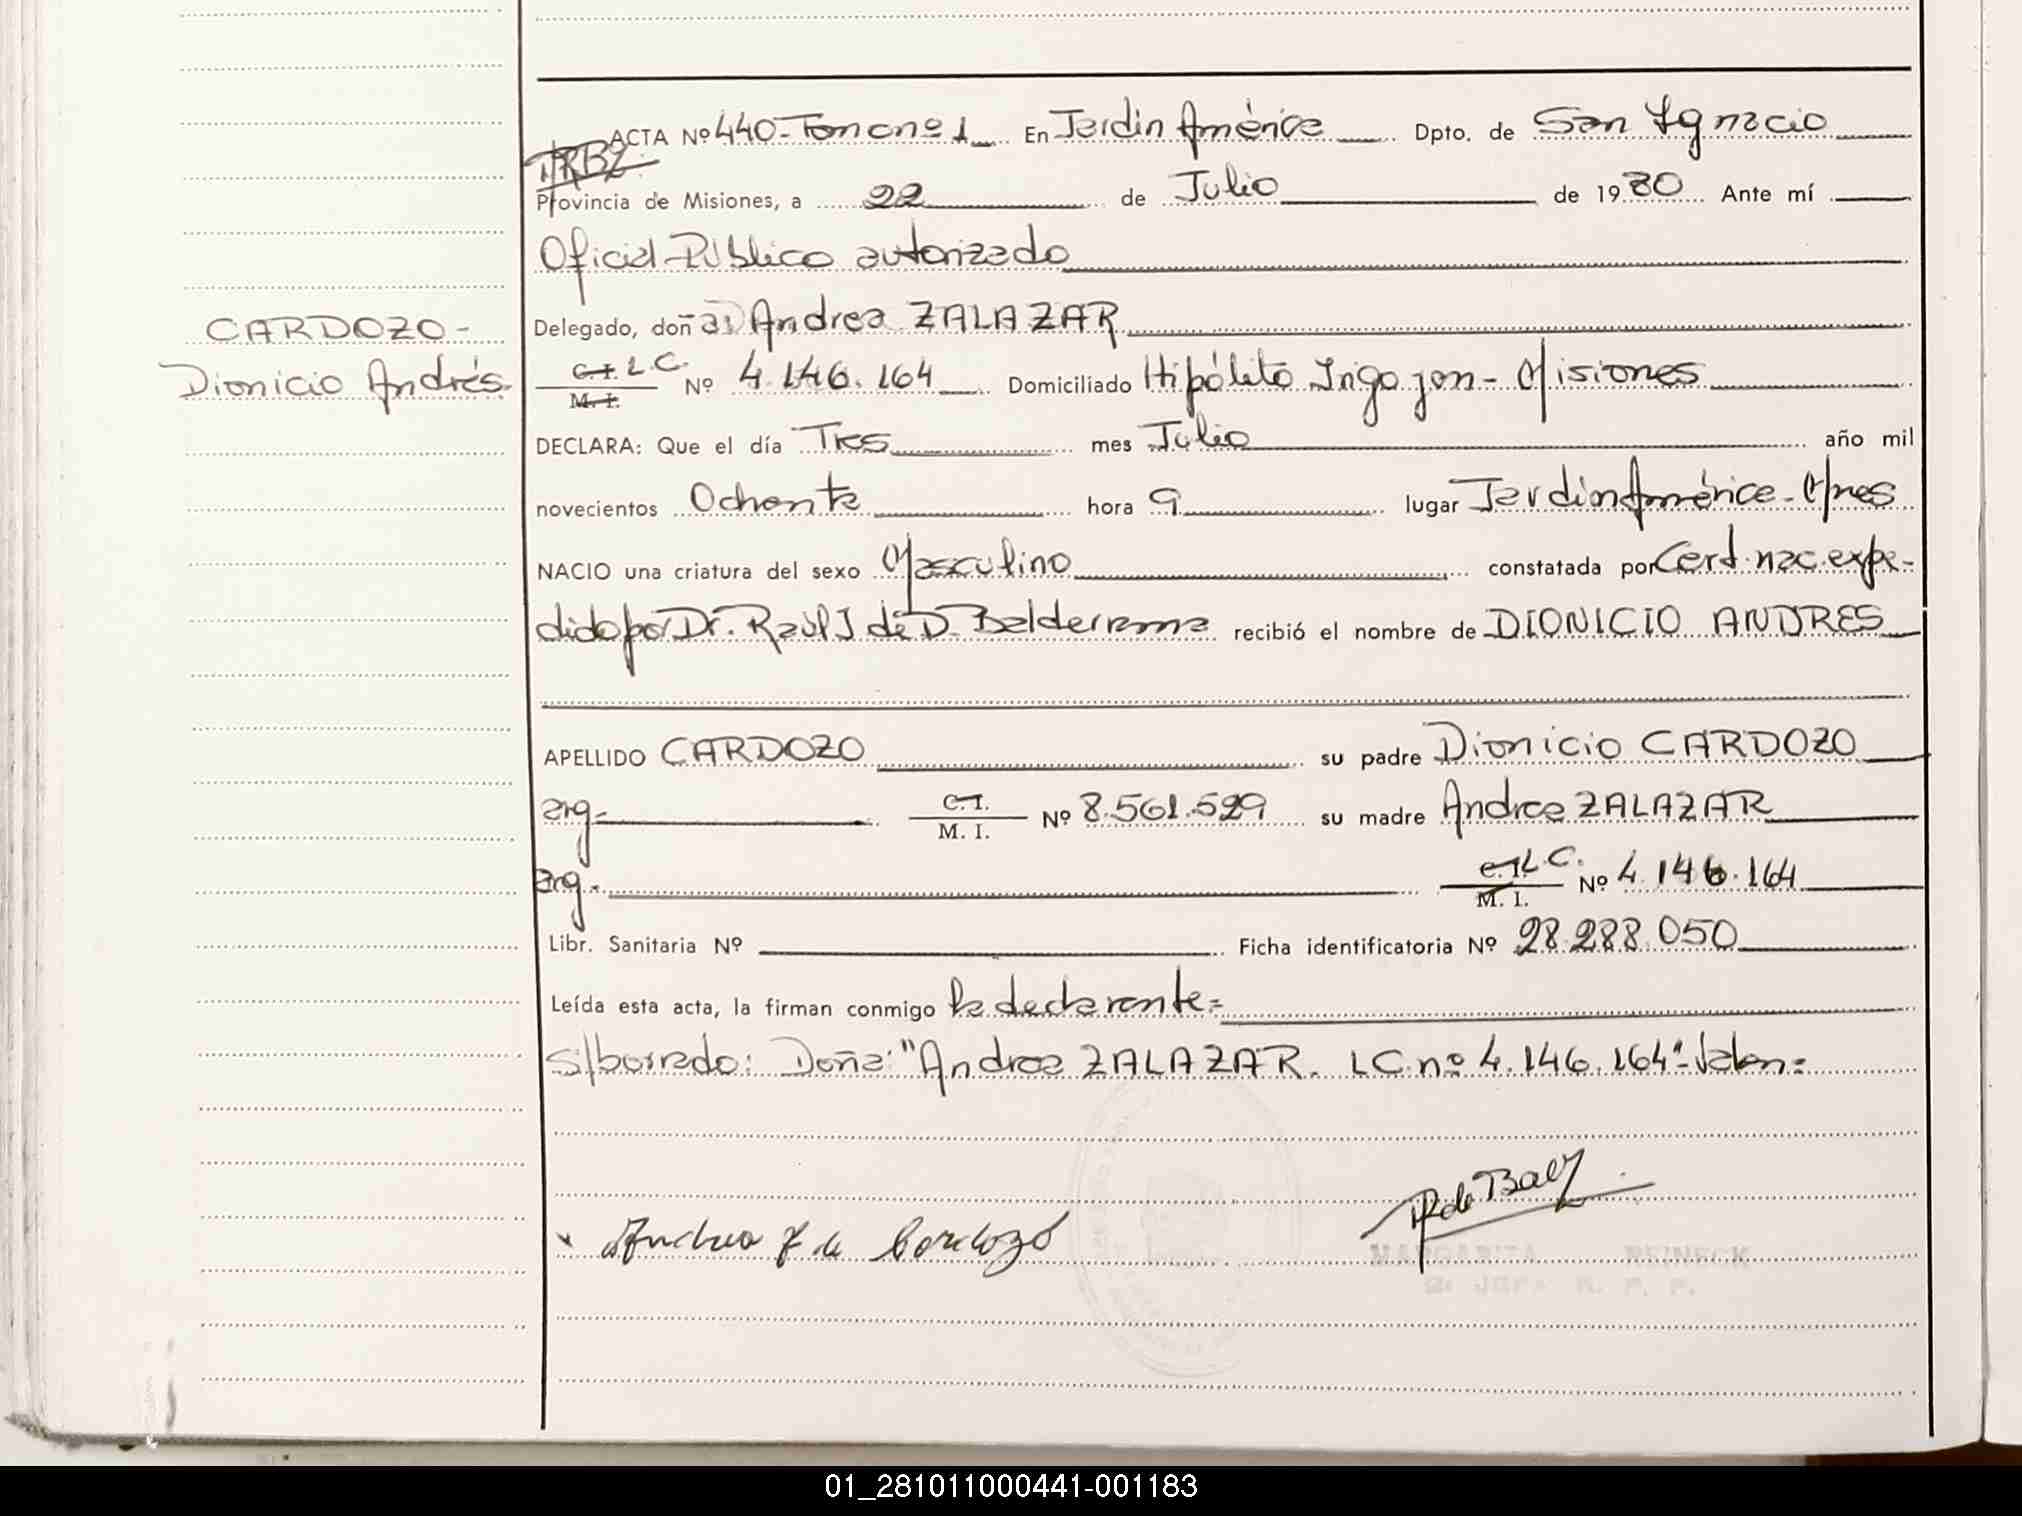 ACTA Nº 440 - Tomo nº 1 En Jardin América Dpto. de San Ignacio
Provincia de Misiones, a 22 de Julio de 1980 Ante mí
Oficial Público autorizado
CARDOZO -
Delegado, doña Andrea ZALAZAR
Dionicio Andrés.
C.I. L.C.
M. I.
Nº 4.146.164 Domiciliado Hipólito Irigoyen - Misiones
DECLARA: Que el día Tres mes Julio año mil
novecientos Ochenta hora 9 lugar Jardin América - Mnes
NACIO una criatura del sexo Masculino constatada por Cert. nac. expe-
dido por Dr. Raúl J. de D. Balderrama recibió el nombre de DIONICIO ANDRES
APELLIDO CARDOZO su padre Dionicio CARDOZO
arg. C.I.
M. I.
Nº 8.561.529 su madre Andrea ZALAZAR
arg. C.I. L.C.
M. I.
Nº 4.146.164
Libr. Sanitaria Nº Ficha identificatoria Nº 28.288.050
Leída esta acta, la firman conmigo la declarante=
S/borrado: Doña: "Andrea ZALAZAR. LC. nº 4.146.164" - Valen=
R de Baez
Andrea Z de Cardozo
MARGARITA REINECK
01_281011000441-001183